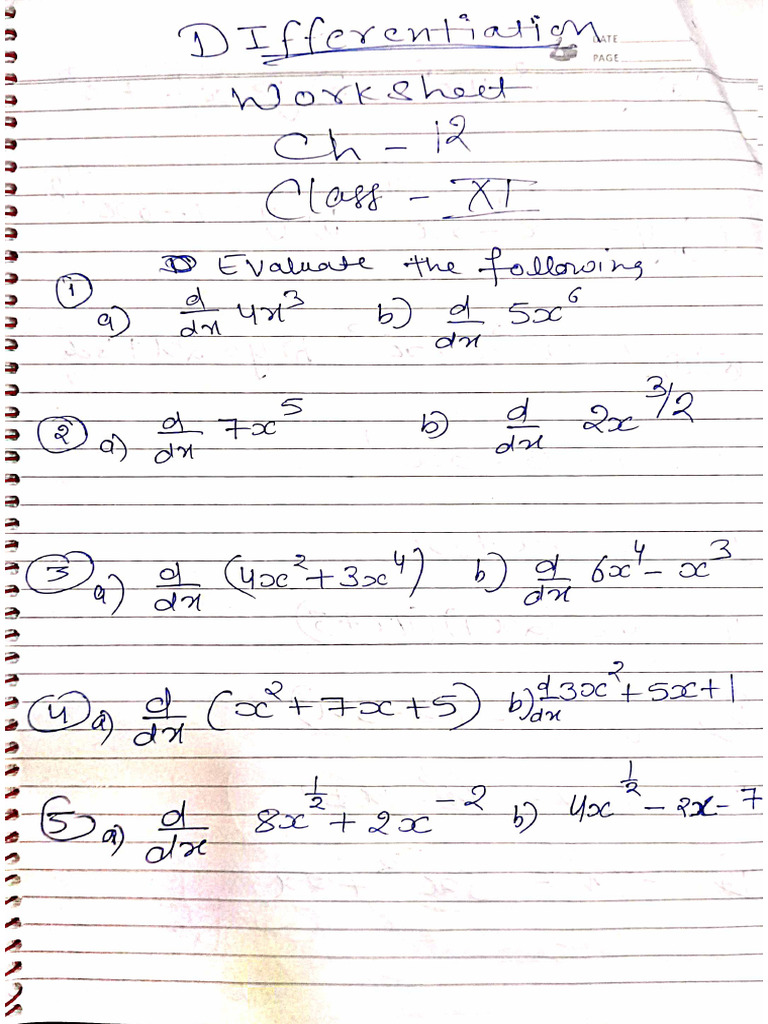 DIfferentiation
DATE
PAGE
Worksheet
Ch - 12
Class - XI
Evaluate the following
① a) d/dx 4x³ b) d/dx 5x⁶
② a) d/dx 7x⁵ b) d/dx 2x^3/2
③ a) d/dx (4x² + 3x⁴) b) d/dx 6x⁴ - x³
④ a) d/dx (x² + 7x + 5) b) d/dx 3x² + 5x + 1
⑤ a) d/dx 8x^1/2 + 2x^-2 b) 4x^1/2 - 2x - 7